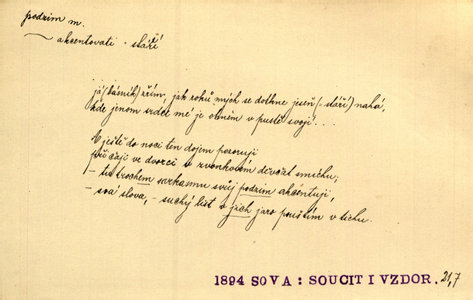 podzim m.
akcentovati · stáří
já (básník) zřím, jak roků mých se dotkne jeseň (= stáří) nahá,
kde jenom srdce mé je ohněm v pustě svojí . . .
A ještě do noci ten dojem pozoruji
při čaji ve dvorci v zvonkovém děvčat smíchu;
– tu trochem sarkasmu svůj podzim akcentuji,
– svá slova, – suchý list v jich jaro pouštím v tichu.
1894 SOVA : SOUCIT I VZDOR. 21,7